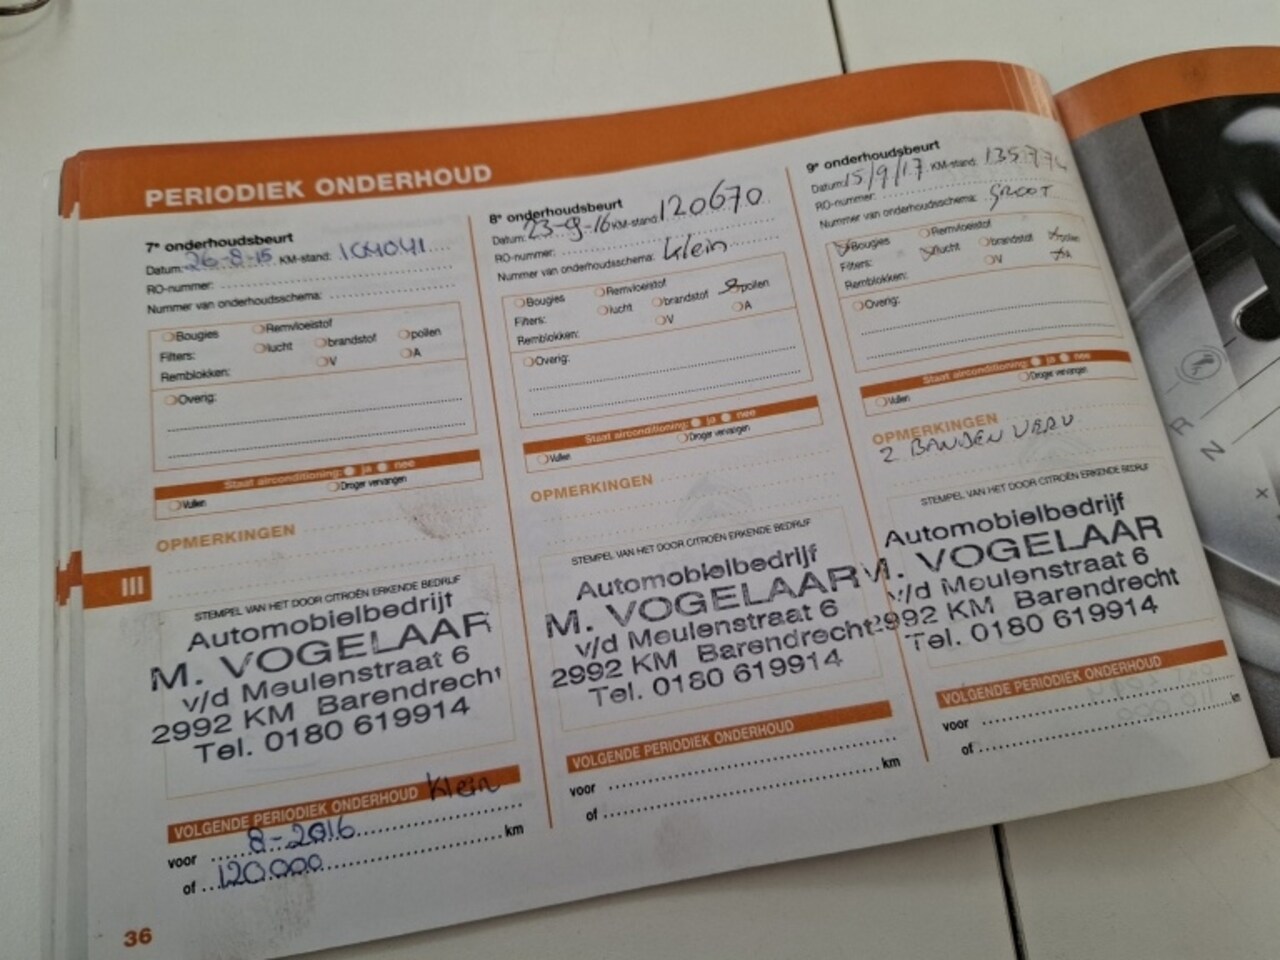 PERIODIEK ONDERHOUD
7e onderhoudsbeurt
Datum: 26-8-15 KM-stand: 104041
RO-nummer:
Nummer van onderhoudsschema:
Bougies Remvloeistof
Filters: lucht brandstof pollen
Remblokken: V A
Overig:
Staat airconditioning: ja nee
Vullen Droger vervangen
OPMERKINGEN
STEMPEL VAN HET DOOR CITROËN ERKENDE BEDRIJF
Automobielbedrijf
M. VOGELAAR
v/d Meulenstraat 6
2992 KM Barendrecht
Tel. 0180 619914
VOLGENDE PERIODIEK ONDERHOUD Klein
voor 8-2016
of 120.000 km
8e onderhoudsbeurt
Datum: 23-9-16 KM-stand: 120670
RO-nummer:
Nummer van onderhoudsschema: klein
Bougies Remvloeistof
Filters: lucht brandstof pollen
Remblokken: V A
Overig:
Staat airconditioning: ja nee
Vullen Droger vervangen
OPMERKINGEN
STEMPEL VAN HET DOOR CITROËN ERKENDE BEDRIJF
Automobielbedrijf
M. VOGELAAR
v/d Meulenstraat 6
2992 KM Barendrecht
Tel. 0180 619914
VOLGENDE PERIODIEK ONDERHOUD
voor
of km
9e onderhoudsbeurt
Datum: 15/9/17 KM-stand:
RO-nummer:
Nummer van onderhoudsschema: GROOT
Bougies Remvloeistof
Filters: lucht brandstof pollen
Remblokken: V A
Overig:
Staat airconditioning: ja nee
Vullen Droger vervangen
OPMERKINGEN
2 BANDEN VERV
STEMPEL VAN HET DOOR CITROËN ERKENDE BEDRIJF
Automobielbedrijf
M. VOGELAAR
v/d Meulenstraat 6
2992 KM Barendrecht
Tel. 0180 619914
VOLGENDE PERIODIEK ONDERHOUD
voor
of km
III
36
R
N